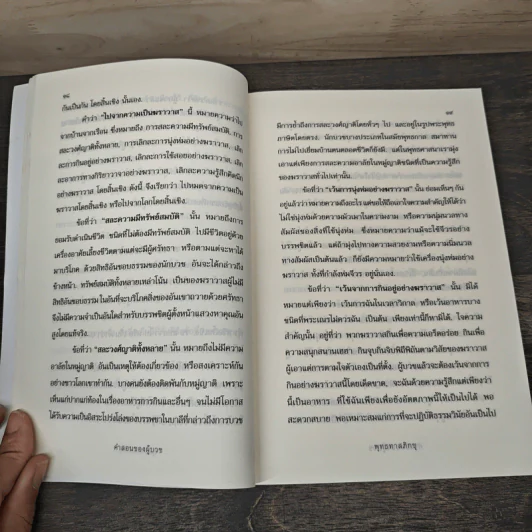 ๑๘
กันเป็นกัน โดยสิ้นเชิง นั้นเอง.
คำว่า “ไปจากความเป็นฆราวาส” นี้ หมายความว่าไป
จากบ้านจากเรือน ซึ่งหมายถึง การสละความมีทรัพย์สมบัติ, การ
สละวงศ์ญาติทั้งหลาย, การเลิกละการนุ่งห่มอย่างฆราวาส, เลิก
ละการกินอยู่อย่างฆราวาส, เลิกละการใช้สอยอย่างฆราวาส, เลิก
ละอาการทางกิริยาวาจาอย่างฆราวาส, เลิกละความรู้สึกคิดนึก
อย่างฆราวาส โดยสิ้นเชิง ดังนี้ จึงเรียกว่า ไปหมดจากความเป็น
ฆราวาสโดยสิ้นเชิง หรือไปจากโลกโดยสิ้นเชิง.
ข้อที่ว่า “สละความมีทรัพย์สมบัติ” นั้น หมายถึงการ
ยอมรับดำเนินชีวิต ชนิดที่ไม่ต้องมีทรัพย์สมบัติ ไปมีชีวิตอยู่ด้วย
เครื่องอาศัยเลี้ยงชีวิตตามแต่จะมีผู้ศรัทธา หรือตามแต่จะหาได้
มาบริโภค ด้วยสิทธิอันชอบธรรมของนักบวช อันจะได้กล่าวถึง
ข้างหน้า ทรัพย์สมบัติทั้งหลายเหล่านั้น เป็นของฆราวาสผู้ไม่มี
สิทธิอันชอบธรรม ในอันที่จะบริโภคสิ่งของอันเขาถวายด้วยศรัทธา
จึงไม่มีความจำเป็นอันใดสำหรับบรรพชิตผู้ตั้งหน้าแสวงหาคุณอัน
สูงโดยแท้จริง.
ข้อที่ว่า “สละวงศ์ญาติทั้งหลาย” นั้น หมายถึงไม่มีความ
อาลัยในหมู่ญาติ อันเป็นเหตุให้ต้องเกี่ยวข้อง หรือสงเคราะห์กัน
อย่างชาวโลกเขาทำกัน. บางคนยังต้องติดพันกับหมู่ญาติ เพราะ
เห็นแก่ปากแก่ท้องในเรื่องอาหารการกินและอื่นๆ จนไม่มีโอกาส
ได้รับความเป็นอิสระโปร่งโล่งของบรรพชาในบาลีที่กล่าวถึงการบวช
คำสอนของผู้บวช
๑๙
มีการย้ำถึงการสละวงศ์ญาติโดยทั่วๆ ไป และอยู่ในรูปพระพุทธ
ภาษิตโดยตรง. นักบวชบางประเภทในสมัยพุทธกาล สมาทาน
การไม่ไปเยี่ยมบ้านตนตลอดชีวิตก็ยังมี แต่ในพุทธศาสนาเรามุ่ง
เอาแต่เพียงการละความอาลัยในหมู่ญาติชนิดที่เป็นความรู้สึก
ของฆราวาสทั่วไปเท่านั้น.
ข้อที่ว่า “เว้นการนุ่งห่มอย่างฆราวาส” นั้น ย่อมเห็นๆ กัน
อยู่แล้วว่าหมายความถึงอะไร แต่ขอให้ถือเอาใจความสำคัญให้ได้ว่า
ไม่ใช่นุ่งห่มด้วยความมัวเมาในความงาม หรือความนุ่มนวลทาง
สัมผัสของสิ่งที่ใช้นุ่งห่ม ซึ่งหมายความว่าแม้จะใช้จีวรอย่าง
บรรพชิตแล้ว แต่ถ้ามุ่งไปทางความสวยงามหรือความนิ่มนวล
ทางสัมผัสเป็นต้นแล้ว ก็ยังมีความหมายว่าใช้เครื่องนุ่งห่มอย่าง
ฆราวาส ทั้งที่กำลังห่มจีวร อยู่นั่นเอง.
ข้อที่ว่า “เว้นจากการกินอยู่อย่างฆราวาส” นั้น มิได้
หมายแต่เพียงว่า เว้นการฉันในเวลาวิกาล หรือเว้นอาหารบาง
ชนิดที่พระเณรไม่ควรฉัน เป็นต้น เพียงเท่านี้ก็หามิได้. ใจความ
สำคัญนั้น อยู่ที่ว่า พวกฆราวาสกินเพื่อความเอร็ดอร่อย กินเพื่อ
ความสนุกสนานเฮฮา กินจุบกินจิบพิถีพิถันตามวิสัยของฆราวาส
ผู้เอาแต่การตามใจตัวเองเป็นที่ตั้ง. ผู้บวชแล้วจะต้องเว้นจากการ
กินอย่างฆราวาสนี้โดยเด็ดขาด, จะฉันด้วยความรู้สึกแต่เพียงว่า
นี้เป็นอาหาร ที่ใช้ฉันเพียงเพื่อยังอัตตภาพนี้ให้เป็นไปได้ พอ
สะดวกสบาย พอเหมาะสมแก่การที่จะปฏิบัติธรรมวินัยอันเป็นไป
พุทธทาสภิกขุ